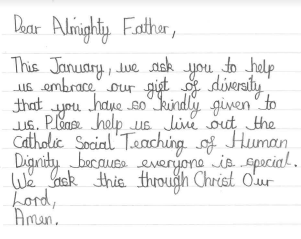 Dear Almighty Father,
This January, we ask you to help
us embrace our gift of diversity
that you have so kindly given to
us. Please help us live out the
Catholic Social Teaching of Human
Dignity because everyone is special.
We ask this through Christ Our
Lord,
Amen.